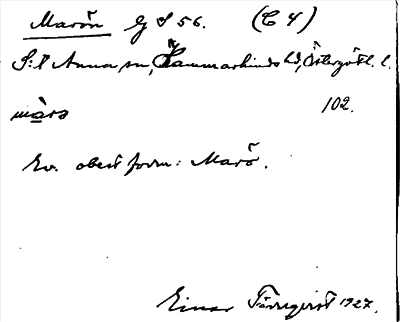 Marön G S 56. (C 4)
S:t Anna sn, Hammarkinds hd, Östergötl. l.
màrs 102.
Ev. obest form: Marö.
Einar Törnqvist 1927.